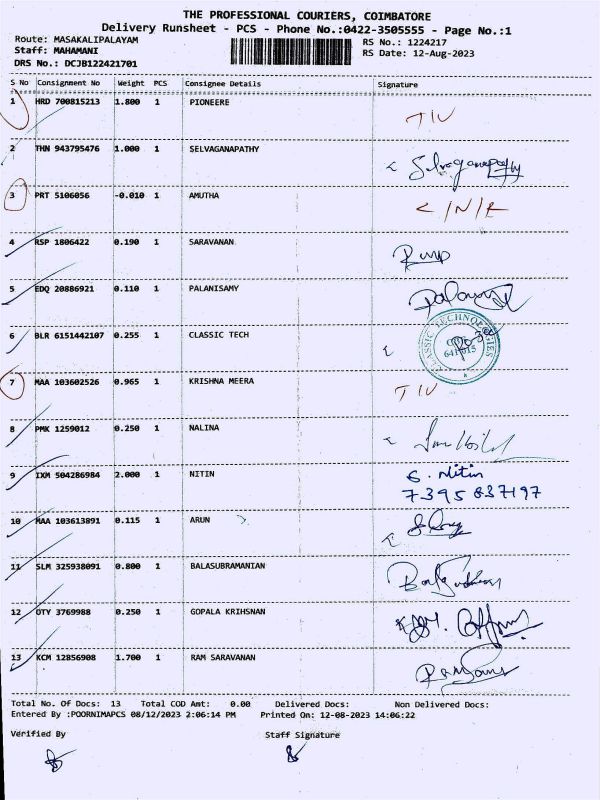 THE PROFESSIONAL COURIERS, COIMBATORE
Delivery Runsheet - PCS - Phone No.:0422-3505555 - Page No.:1
Route: MASAKALIPALAYAM RS No.: 1224217
Staff: MAHAMANI RS Date: 12-Aug-2023
DRS No.: DCJB122421701
S No Consignment No Weight PCS Consignee Details Signature
1 HRD 700815213 1.800 1 PIONEERE
2 THN 943795476 1.000 1 SELVAGANAPATHY Selvaganapathy
3 PRT 5106056 -0.010 1 AMUTHA
4 RSP 1806422 0.190 1 SARAVANAN
5 EDQ 20886921 0.110 1 PALANISAMY
6 BLR 6151442107 0.255 1 CLASSIC TECH CLASSIC TECHNOLOGIES
7 MAA 103602526 0.965 1 KRISHNA MEERA
8 PMK 1259012 0.250 1 NALINA
9 IXM 504286984 2.000 1 NITIN G. Nitin
7395837197
10 MAA 103613891 0.115 1 ARUN
11 SLM 325938091 0.800 1 BALASUBRAMANIAN
12 OTY 3769988 0.250 1 GOPALA KRIHSNAN
13 KCM 12856908 1.700 1 RAM SARAVANAN
Total No. Of Docs: 13 Total COD Amt: 0.00 Delivered Docs: Non Delivered Docs:
Entered By :POORNIMAPCS 08/12/2023 2:06:14 PM Printed On: 12-08-2023 14:06:22
Verified By Staff Signature